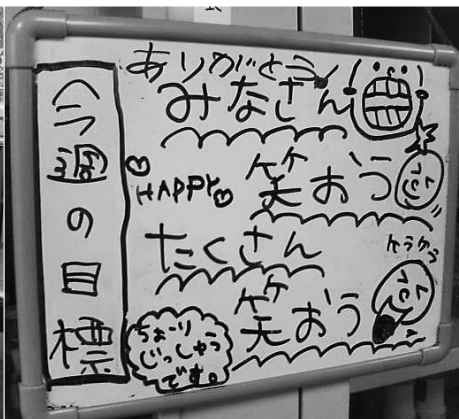 今週の目標
ありがとう!
みなさん
HAPPY
笑おう
たくさん
ケラケラ
笑おう
ちょーり
じっしゅう
です。